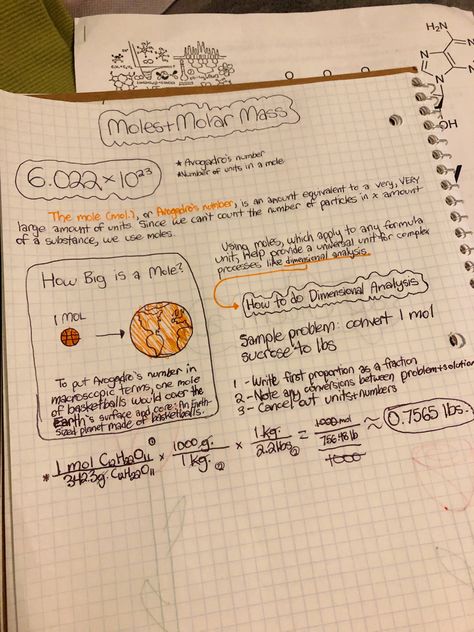 Moles + Molar Mass
6.022 × 10²³
* Avogadro's number
* Number of units in a mole
The mole (mol.), or Avogadro's number, is an amount equivalent to a very, VERY
large amount of units. Since we can't count the number of particles in x amount
of a substance, we use moles.
How Big is a Mole?
1 MOL
To put Avogadro's number in
macroscopic terms, one mole
of basketballs would cover the
Earth's surface and core: An Earth-
sized planet made of basketballs.
Using moles, which apply to any formula
unit, help provide a universal unit for complex
processes like dimensional analysis.
How to do Dimensional Analysis
Sample problem: convert 1 mol
sucrose to lbs
1 - Write first proportion as a fraction
2 - Note any conversions between problem + solution
3 - Cancel out units + numbers
* 1 mol C₁₂H₂₂O₁₁ / 342.3g. C₁₂H₂₂O₁₁ × 1000g. / 1 kg. × 1 kg. / 2.2 lbs = 1000 mol / 756.48 lb / 1000 ≈ 0.7565 lbs.
N
N
N
OH